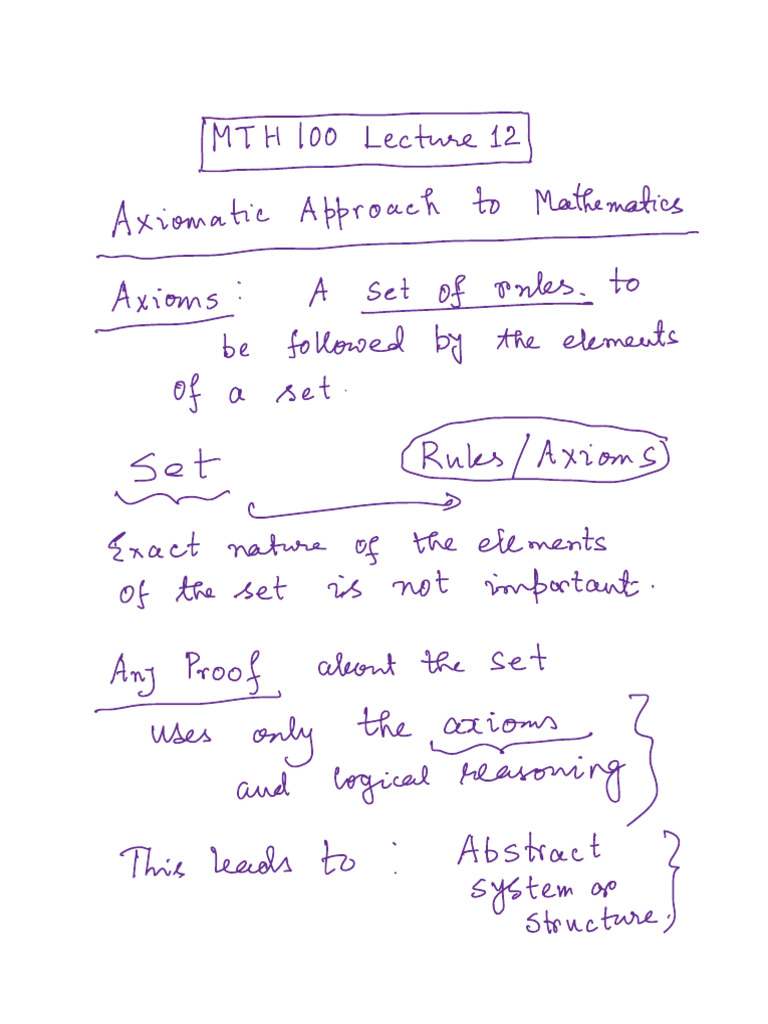 MTH 100 Lecture 12
Axiomatic Approach to Mathematics
Axioms : A set of rules. to
be followed by the elements
of a set.
Set Rules/Axioms
Exact nature of the elements
of the set is not important.
Any Proof about the set
uses only the axioms
and logical reasoning
This leads to : Abstract
system or
structure.